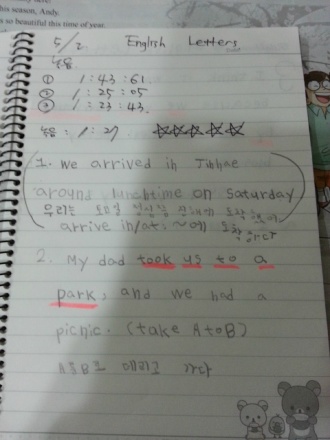 this season, Andy.
s so beautiful this time of year.
5/2 English Letters
녹음
① 1:43:61.
② 1:25:05
③ 1:23:43.
녹음: 1:27 ☆☆☆☆☆
1. we arrived in Jinhae
around lunchtime on saturday
우리는 토요일 점심쯤 진해에 도착했어
arrive in/at: ~에 도착하다
2. My dad took us to a
park, and we had a
picnic. (take A to B)
A를 B로 데리고 가다